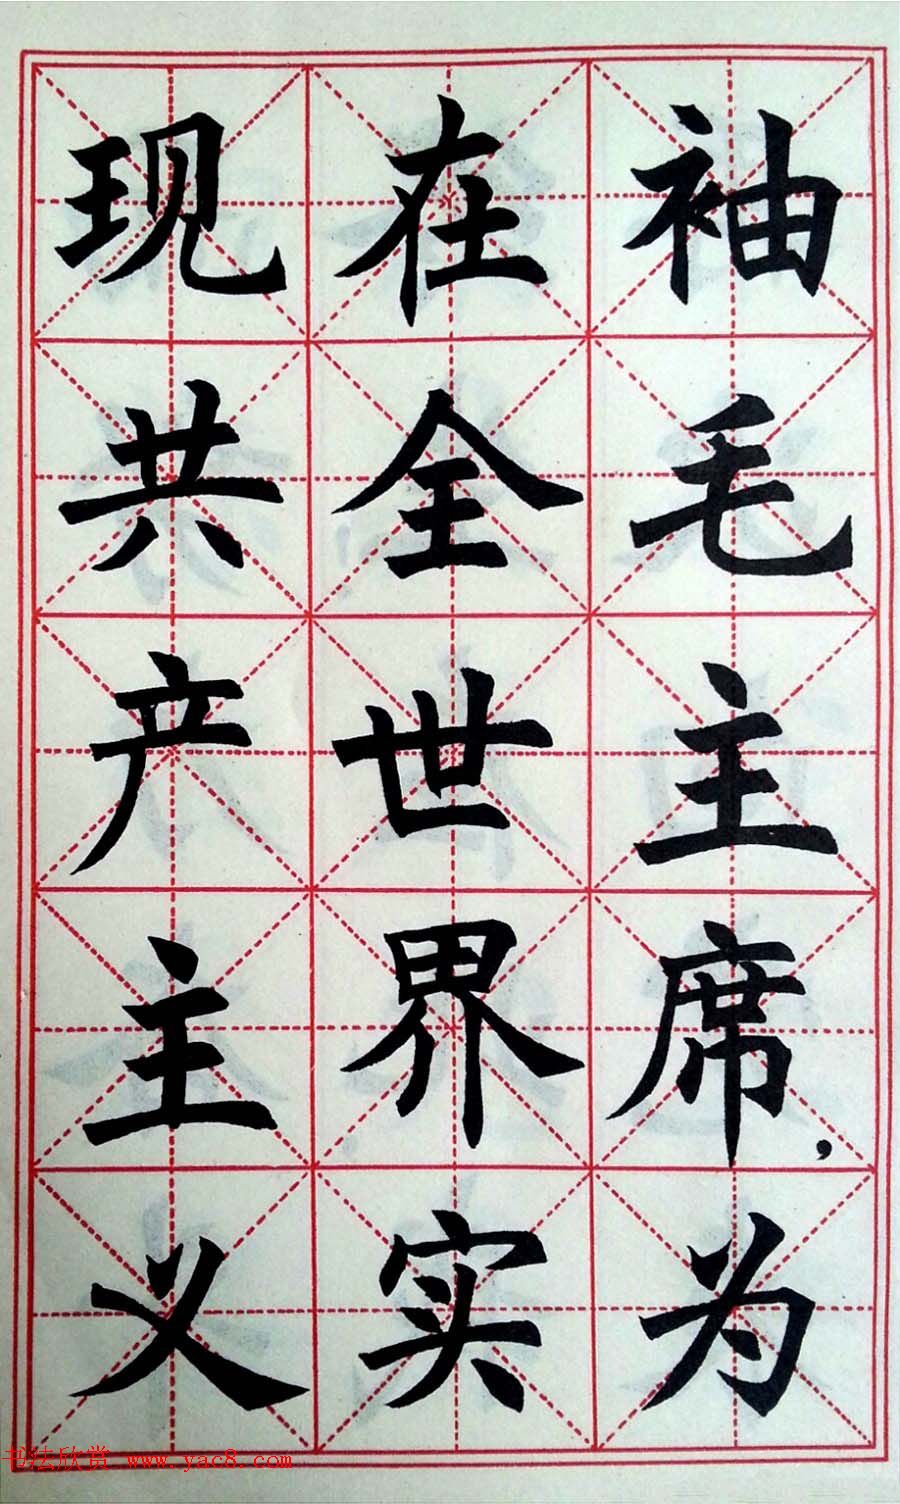 袖毛主席，为
在全世界实
现共产主义
书法欣赏 www.yac8.com